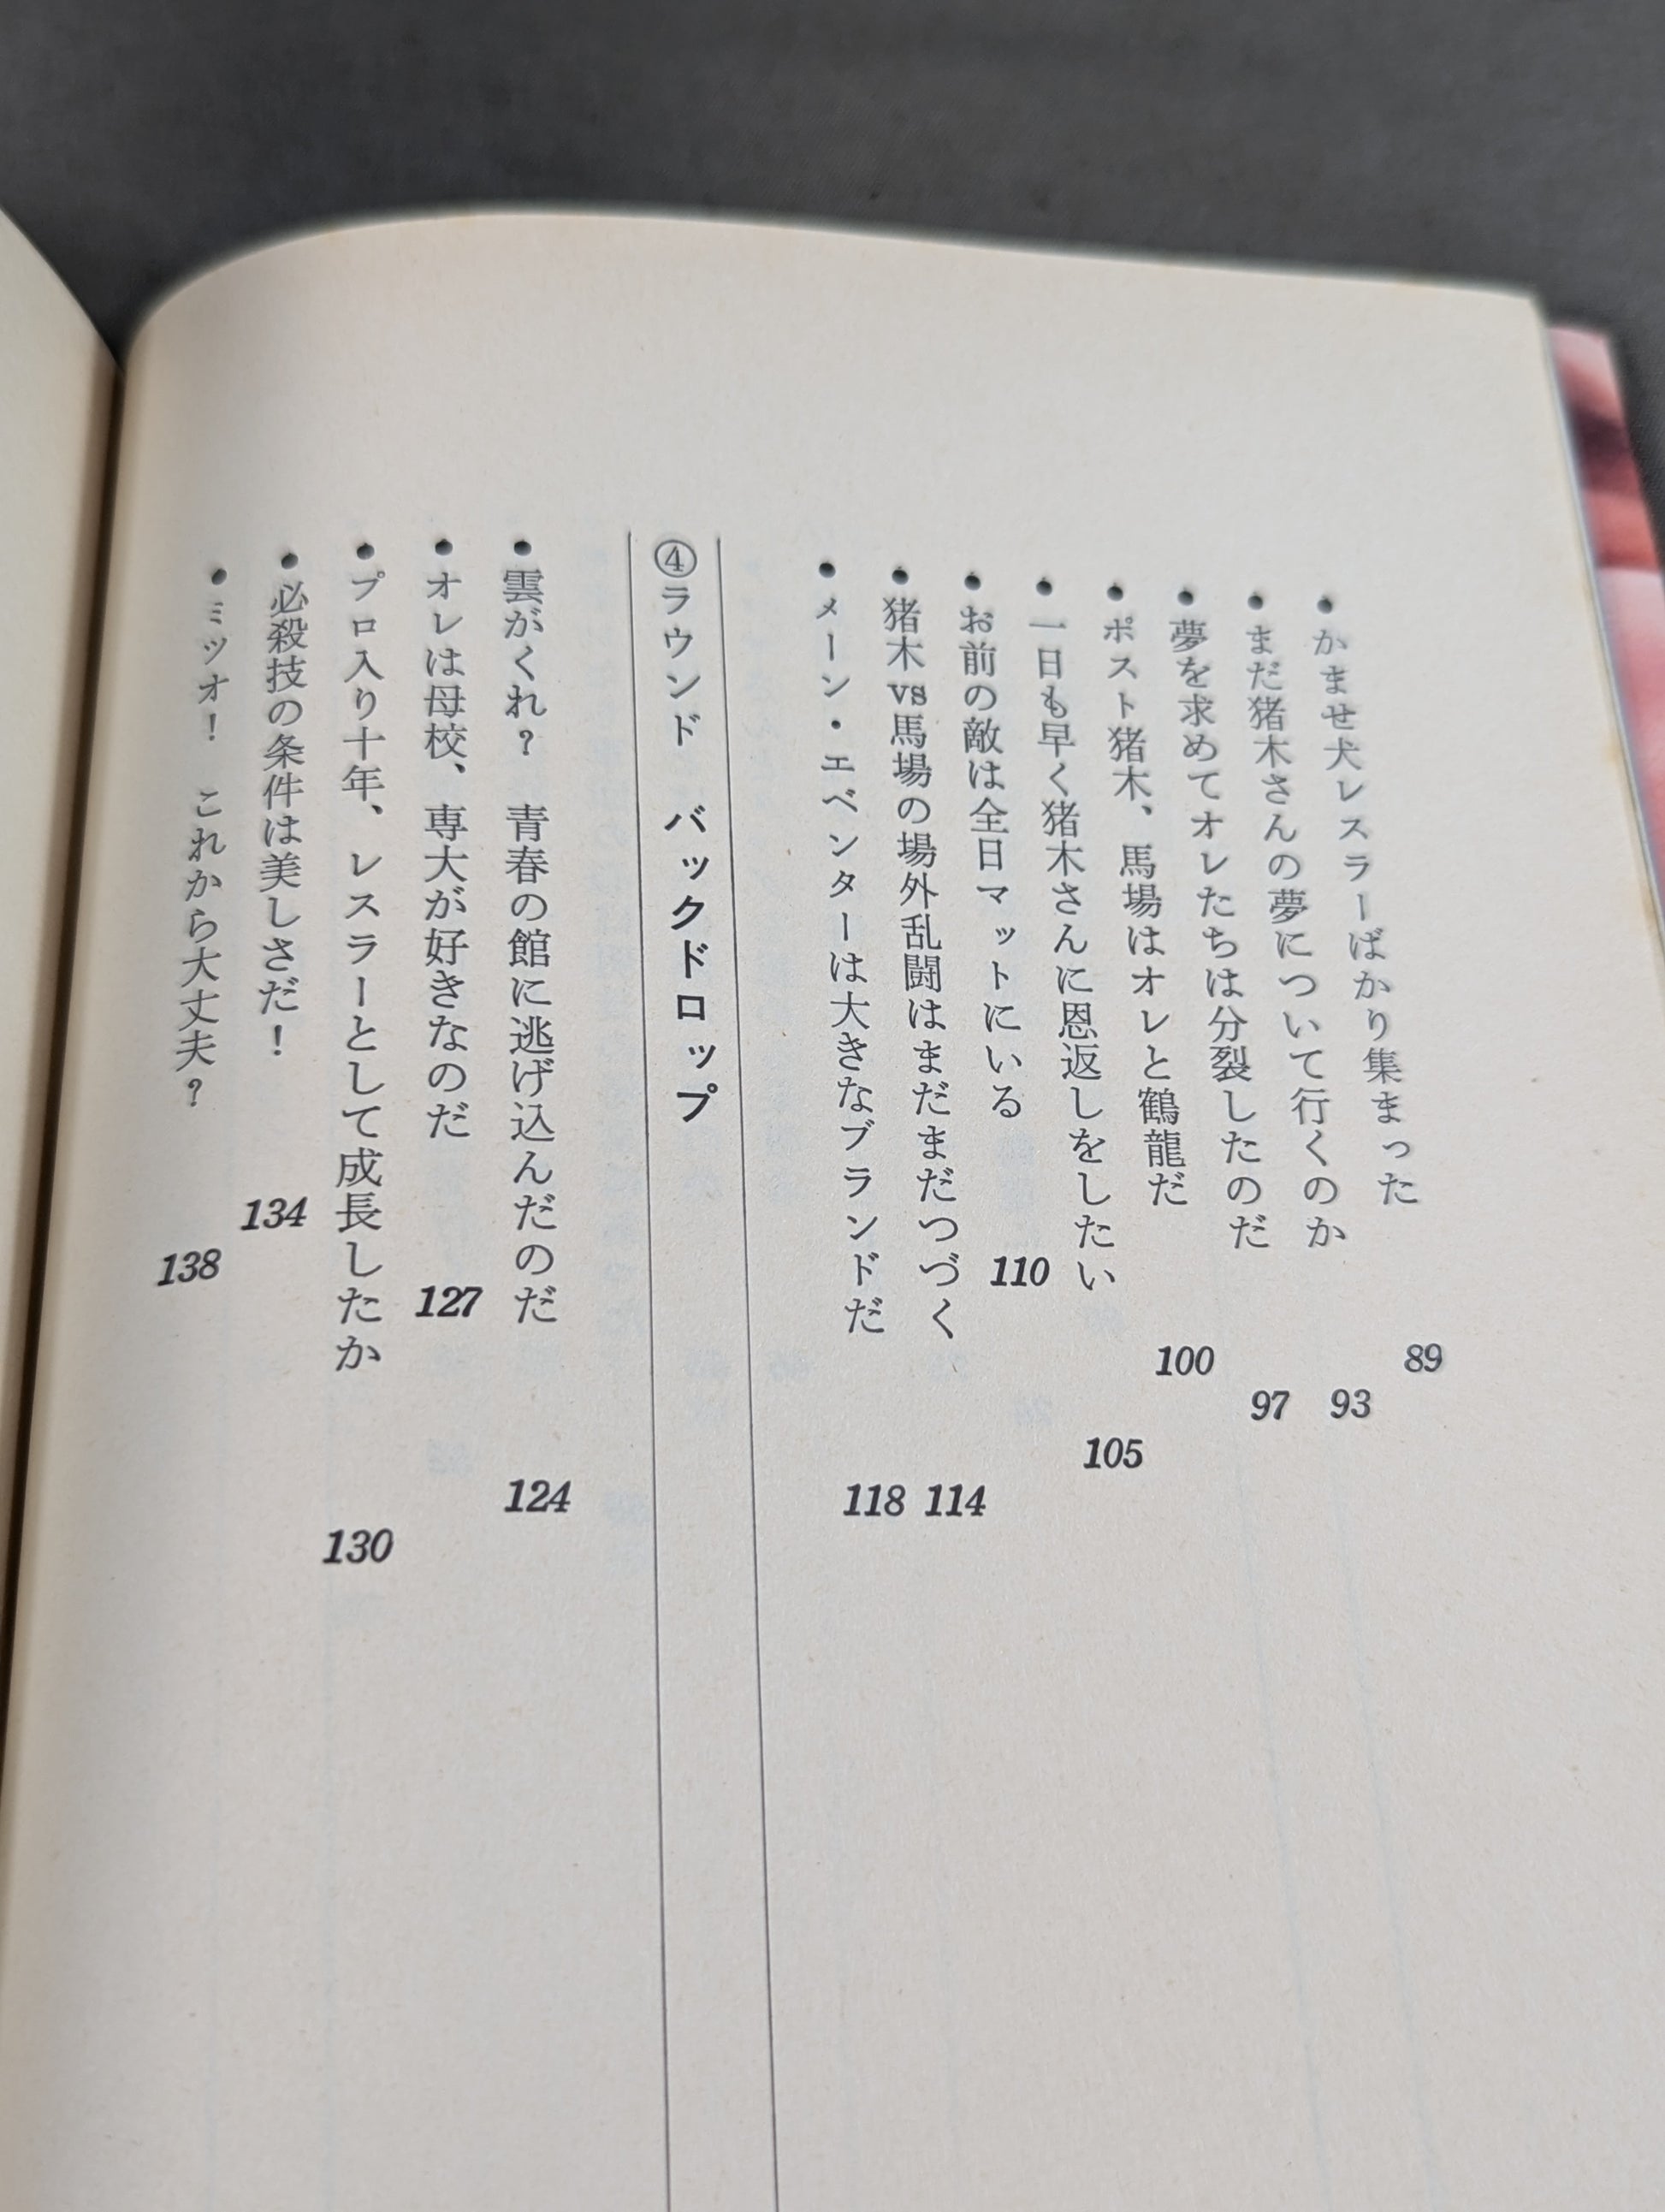 ●かませ犬レスラーばかり集まった 89
●まだ猪木さんの夢について行くのか 93
●夢を求めてオレたちは分裂したのだ 97
●ポスト猪木、馬場はオレと鶴龍だ 100
●一日も早く猪木さんに恩返しをしたい 105
●お前の敵は全日マットにいる 110
●猪木vs馬場の場外乱闘はまだまだつづく 114
●メーン・エベンターは大きなブランドだ 118
④ラウンド バックドロップ
●雲がくれ? 青春の館に逃げ込んだのだ 124
●オレは母校、専大が好きなのだ 127
●プロ入り十年、レスラーとして成長したか 130
●必殺技の条件は美しさだ! 134
●ミツオ! これから大丈夫? 138